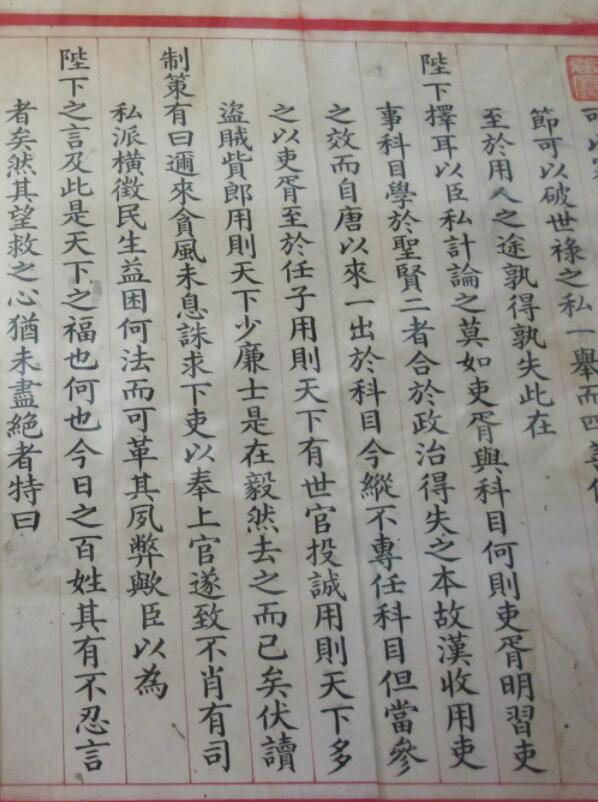 可以
節可以破世祿之私一舉而四善
至於用人之途孰得孰失此在
陛下擇耳以臣私計論之莫如吏胥與科目何則吏胥明習吏
事科目學於聖賢二者合於政治得失之本故漢收用吏
之效而自唐以來一出於科目今縱不專任科目但當參
之以吏胥至於任子用則天下有世官投誠用則天下多
盜賊貲郎用則天下少廉士是在毅然去之而已矣伏讀
制策有曰邇來貪風未息誅求下吏以奉上官遂致不肖有司
私派橫徵民生益困何法而可革其夙弊歟臣以為
陛下之言及此是天下之福也何也今日之百姓其有不忍言
者矣然其望救之心猶未盡絕者特曰